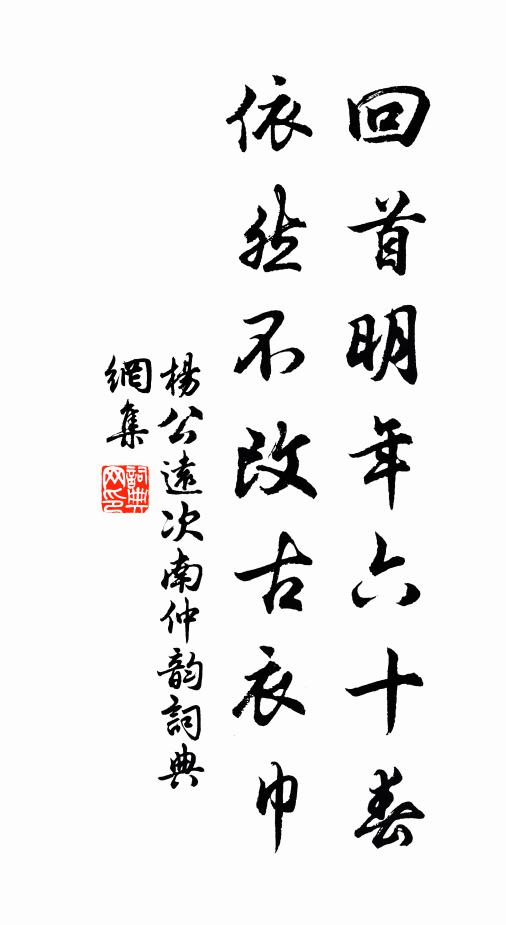 回首明年六十春
依然不改古衣巾
楊公遠次南仲韵詞典
網集
詞典
网印